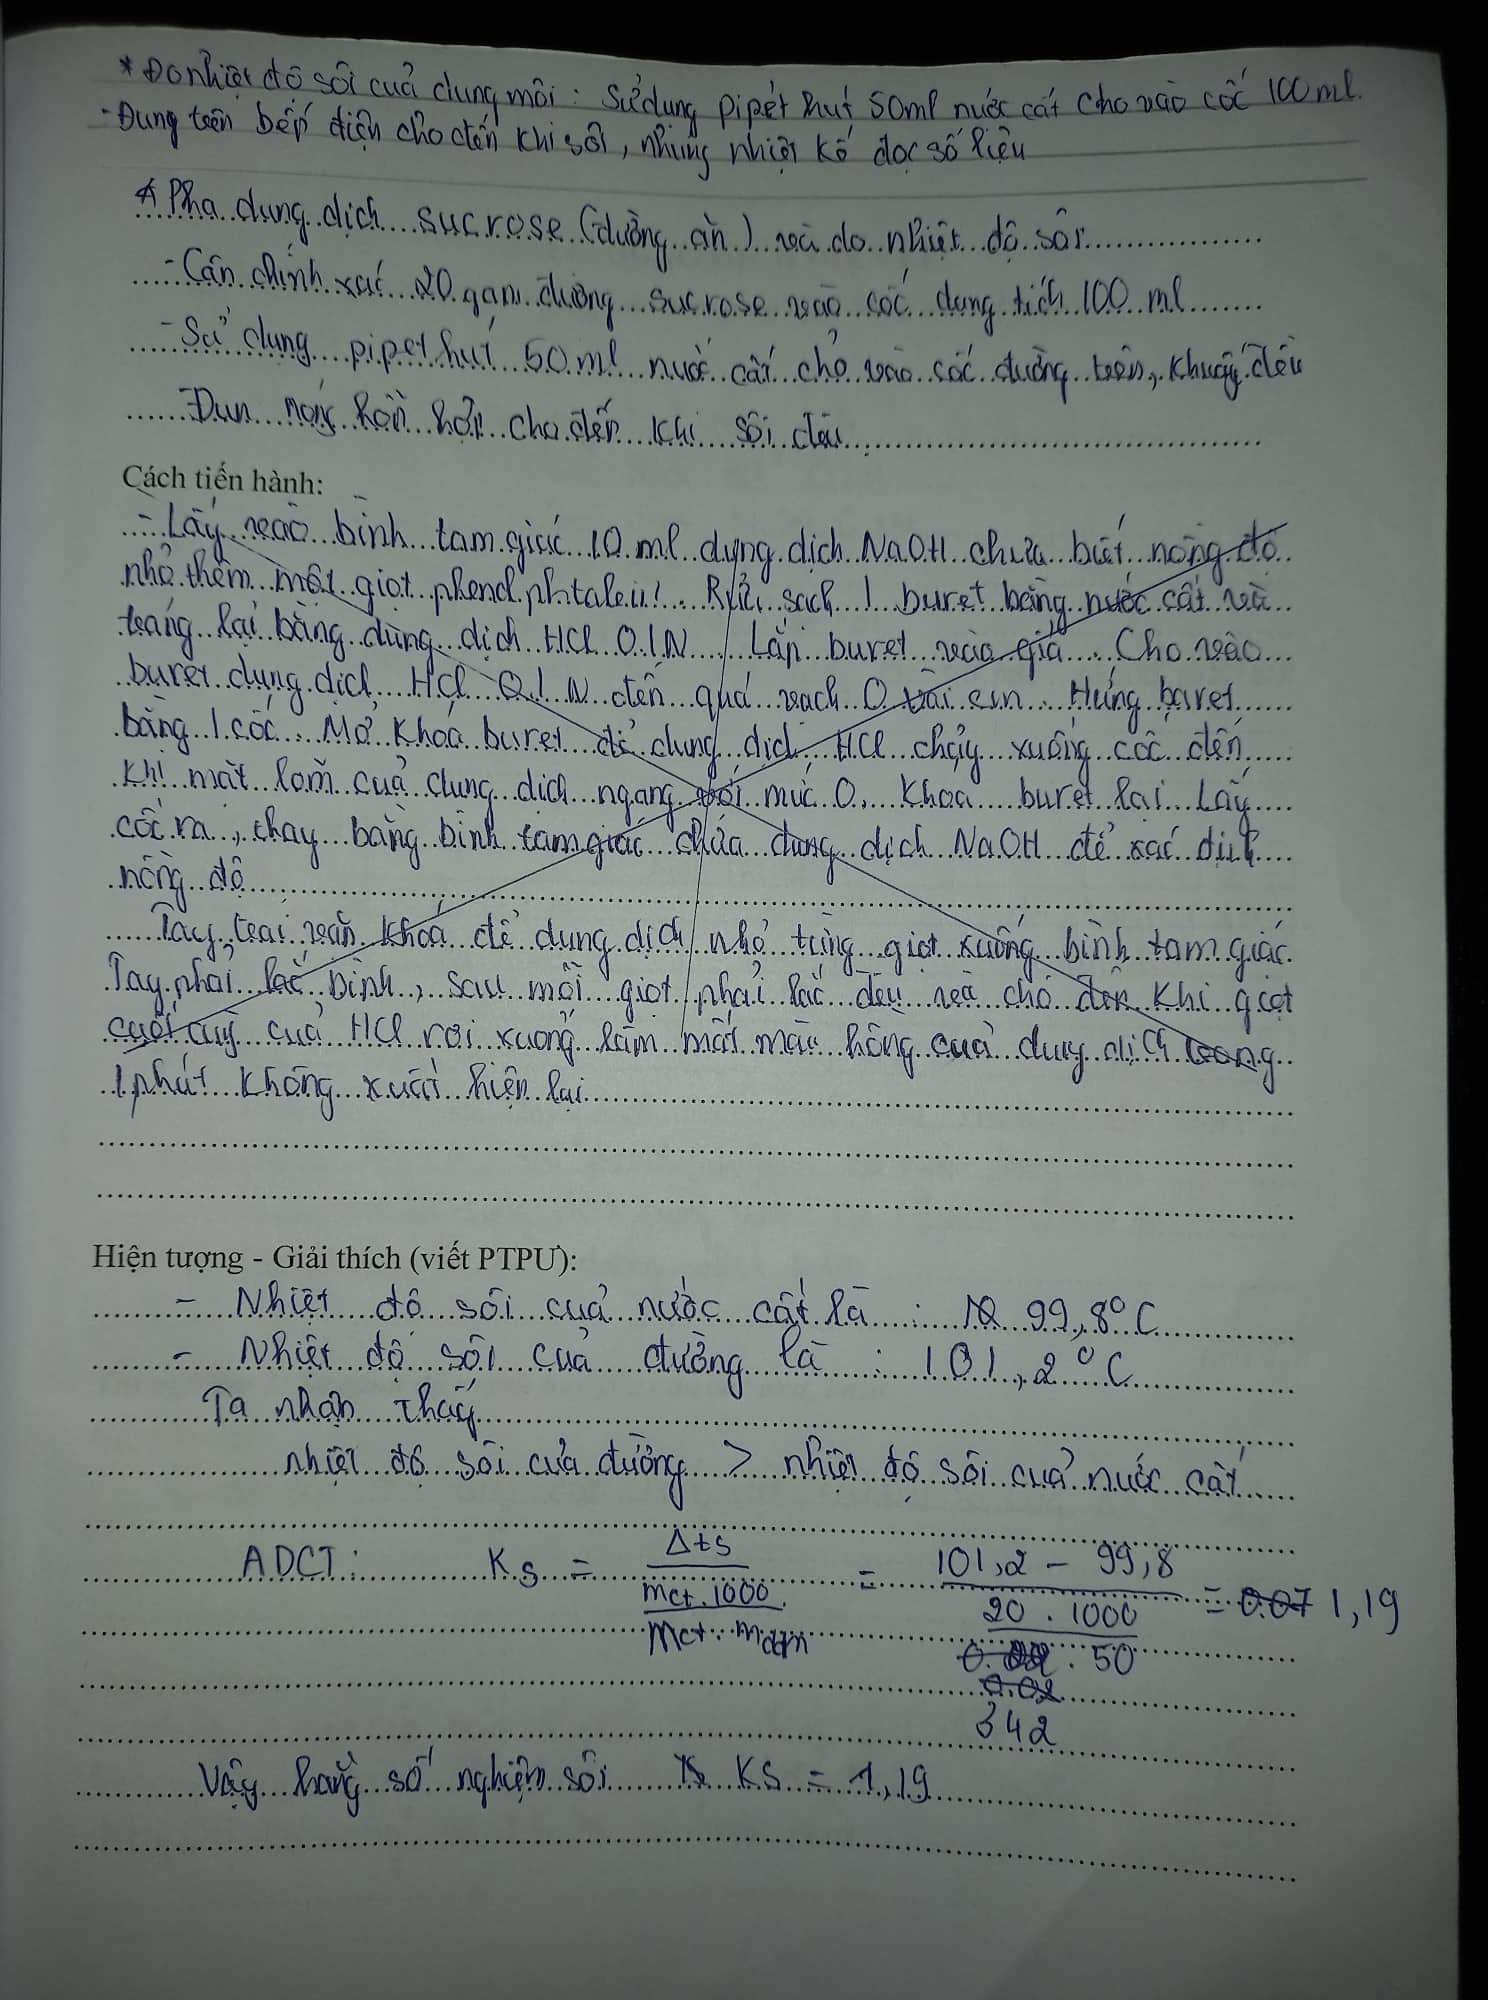 * Đo nhiệt độ sôi của dung môi : Sử dụng pipét hút 50ml nước cất cho vào cốc 100ml.
- Đung trên bếp điện cho đến khi sôi, nhúng nhiệt kế đọc số liệu
* Pha dung dịch sucrose (đường ăn) và đo nhiệt độ sôi
- Cân chính xác 20 gam đường sucrose vào cốc dung tích 100 ml
- Sử dụng pipet hút 50ml nước cất cho vào cốc đường trên, khuấy đều
Đun nóng hỗn hợp cho đến khi sôi đều
Cách tiến hành:
- Lấy vào bình tam giác 10 ml dung dịch NaOH chưa biết nồng độ
nhỏ thêm một giọt phenol phtalein. Rửa sạch 1 buret bằng nước cất và
tráng lại bằng dung dịch HCl 0.1N. Lắp buret vào giá. Cho vào
buret dung dịch HCl 0.1N đến quá vạch 0 vài cm. Hứng buret
bằng 1 cốc. Mở khóa buret để dung dịch HCl chảy xuống cốc đến
khi mặt lõm của dung dịch ngang với mức 0, khóa buret lại. Lấy
cốc ra, thay bằng bình tam giác chứa dung dịch NaOH để xác định
nồng độ
Tay trái vặn khóa để dung dịch nhỏ từng giọt xuống bình tam giác.
Tay phải lắc bình, sau mỗi giọt phải lắc đều và cho đến khi giọt
cuối cùng của HCl rơi xuống làm mất màu hồng của dung dịch trong
1 phút không xuất hiện lại
Hiện tượng - Giải thích (viết PTPƯ):
- Nhiệt độ sôi của nước cất là : 99,8°C
- Nhiệt độ sôi của đường là : 101,2°C
Ta nhận thấy
nhiệt độ sôi của đường > nhiệt độ sôi của nước cất
ADCT: Ks = Δts / (mct.1000 / Mct.mdm) = (101,2 - 99,8) / (20.1000 / 342.50) = 1,19
Vậy hằng số nghiệm sôi Ks = 1,19